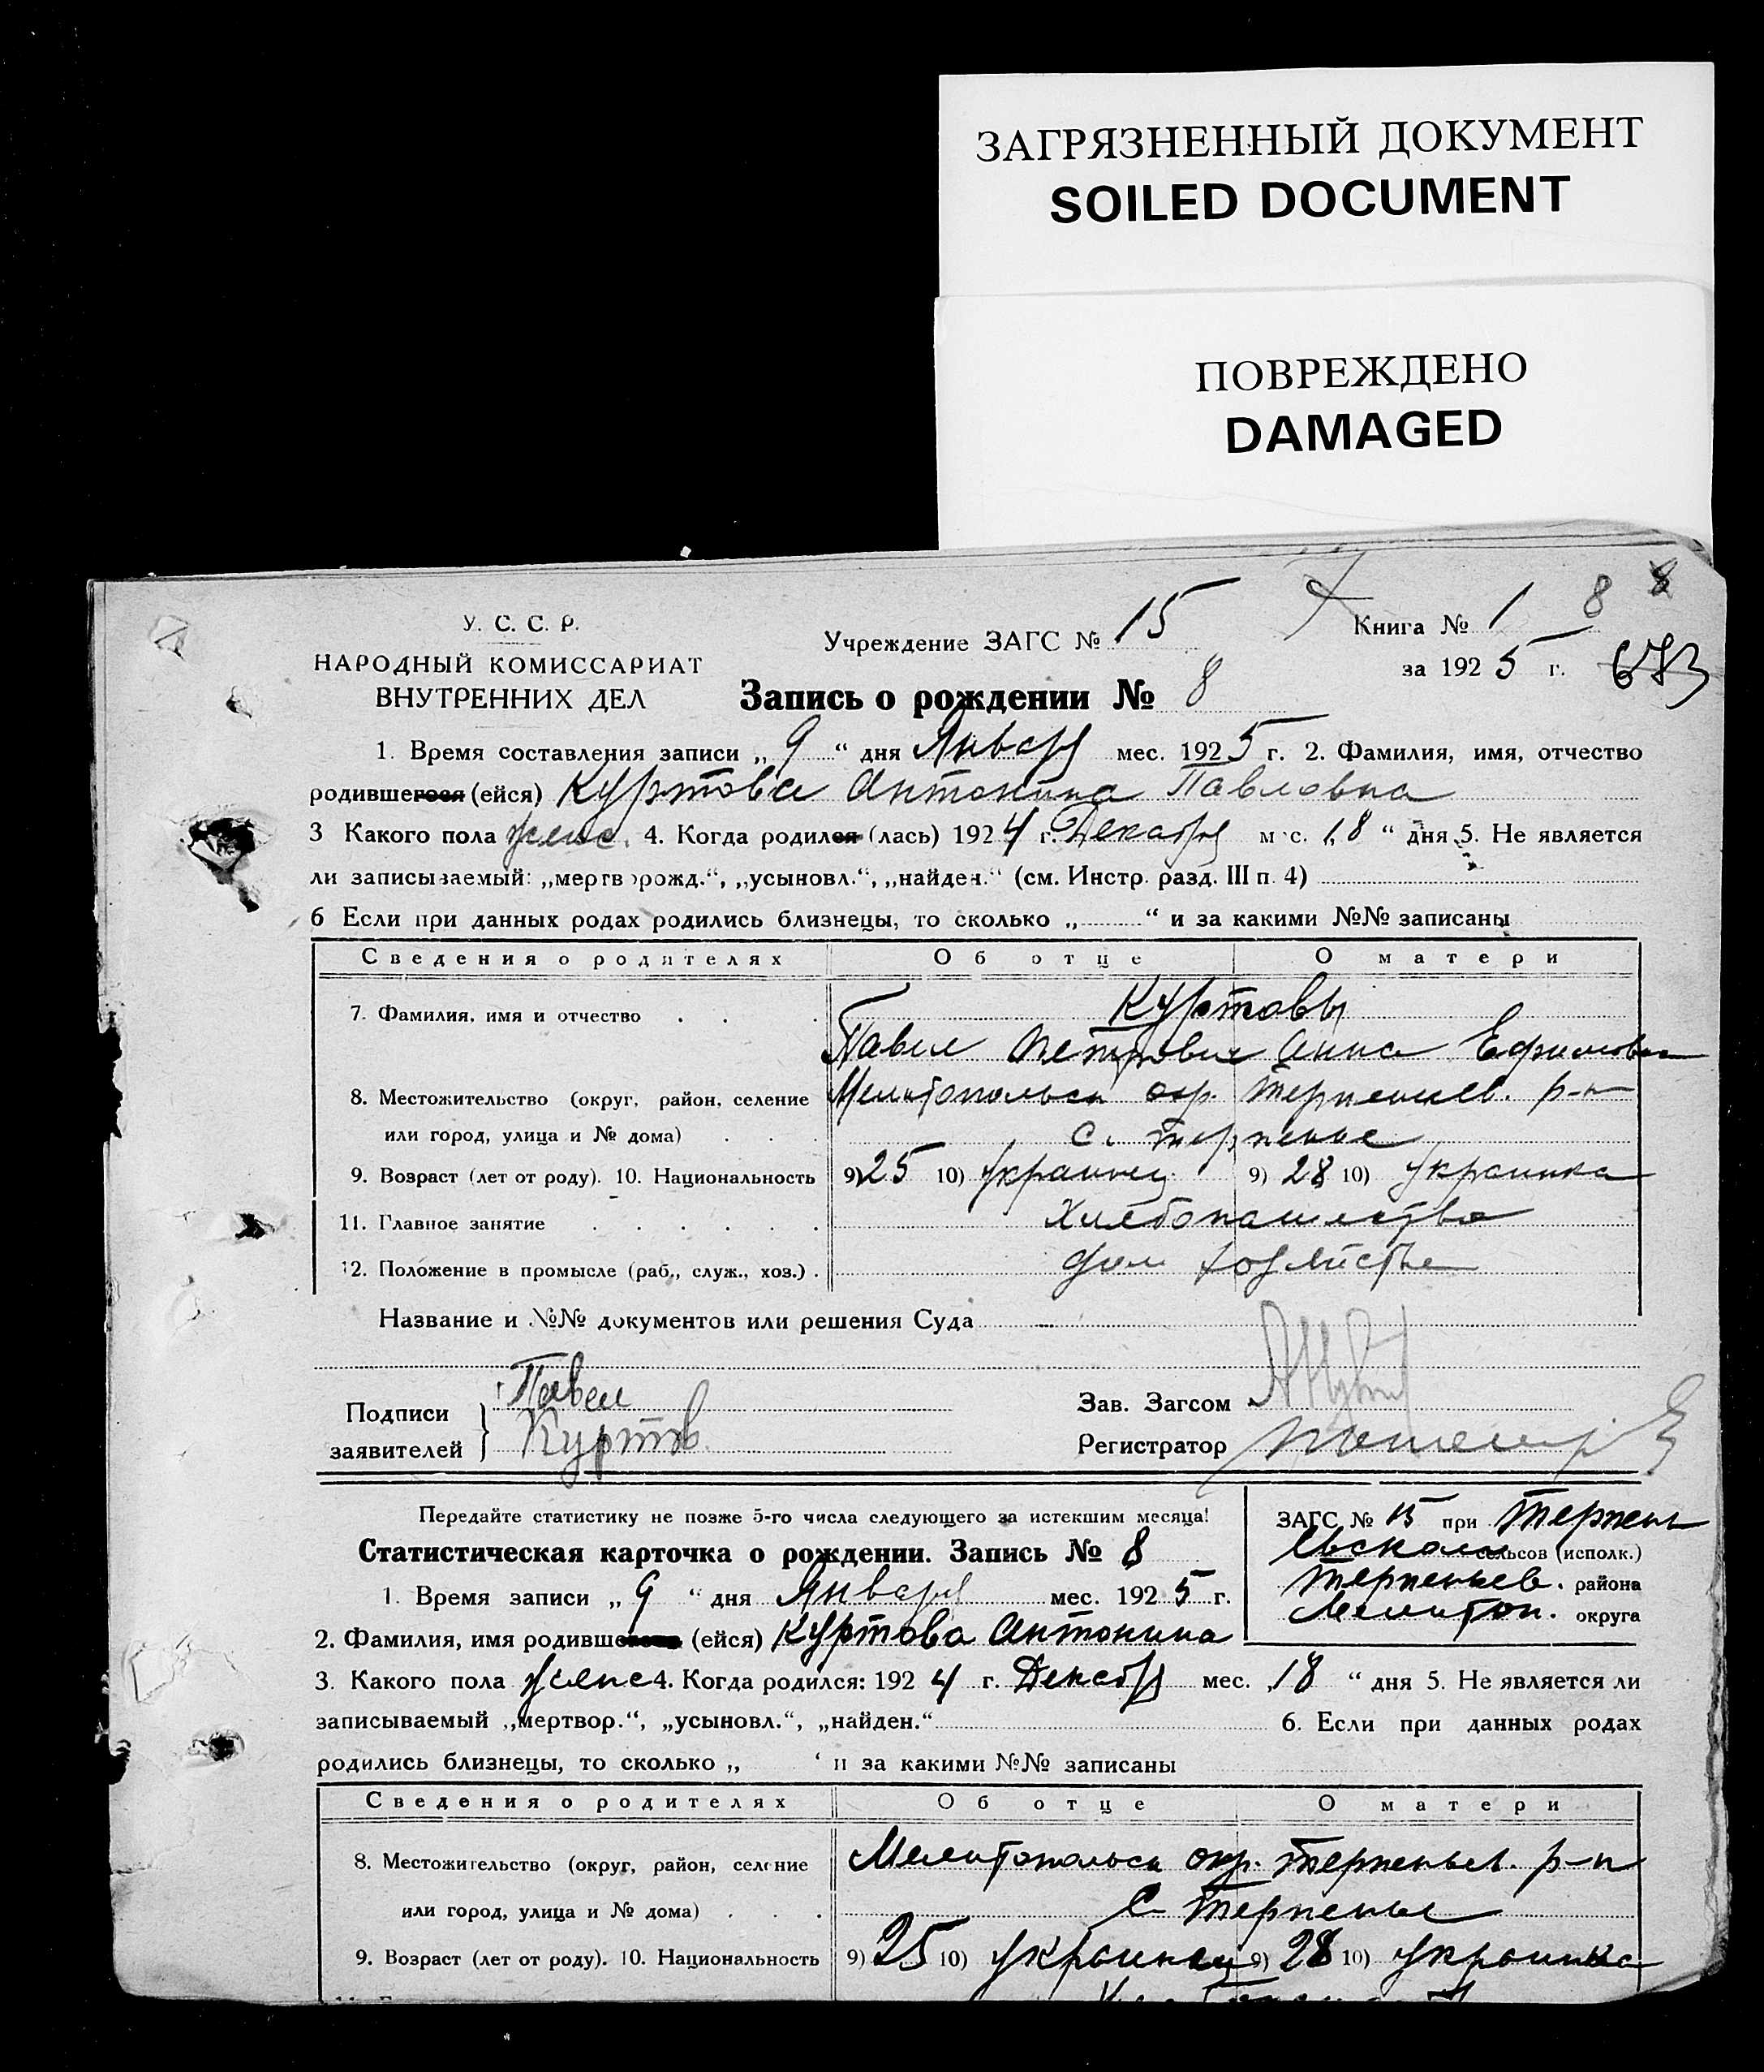 ЗАГРЯЗНЕННЫЙ ДОКУМЕНТ
SOILED DOCUMENT
ПОВРЕЖДЕНО
DAMAGED
8 8
У. С. С. Р.
НАРОДНЫЙ КОМИССАРИАТ
ВНУТРЕННИХ ДЕЛ
Учреждение ЗАГС № 15
Книга № 1
за 1925 г.
Запись о рождении № 8
1. Время составления записи „9“ дня Январ мес. 1925 г. 2. Фамилия, имя, отчество
родившегося (ейся) Куртова Антонина Павловна
3 Какого пола женс. 4. Когда родился (лась) 1924 г. Декабр мес. „18“ дня 5. Не является
ли записываемый: „мертворожд.“, „усыновл.“, „найден.“ (см. Инстр. разд. III п. 4)
6 Если при данных родах родились близнецы, то сколько „ “ и за какими №№ записаны
Сведения о родителях Об отце О матери
7. Фамилия, имя и отчество Куртовы
Павел Петрович Анна Ефимовна
8. Местожительство (округ, район, селение Мелитопольск окр. Терпеньев. р-н
или город, улица и № дома) с. Терпенье
9. Возраст (лет от роду). 10. Национальность 9) 25 10) Украинец 9) 28 10) Украинка
11. Главное занятие Хлебопашество
12. Положение в промысле (раб., служ., хоз.)
Название и №№ документов или решения Суда —
Подписи заявителей Павел
Куртов
Зав. Загсом
Регистратор
Передайте статистику не позже 5-го числа следующего за истекшим месяца!
Статистическая карточка о рождении. Запись № 8
ЗАГС № 15 при Терпень
евском сельсов (исполк.)
Терпеньев. района
Мелитоп. округа
1. Время записи „9“ дня Январ мес. 1925 г.
2. Фамилия, имя родившегося (ейся) Куртова Антонина
3. Какого пола женс 4. Когда родился: 1924 г. Декабр мес. „18“ дня 5. Не является ли
записываемый „мертвор.“, „усыновл.“, „найден.“ 6. Если при данных родах
родились близнецы, то сколько „ ‘ и за какими №№ записаны
Сведения о родителях Об отце О матери
8. Местожительство (округ, район, селение Мелитопольск окр. Терпеньев. р-н
или город, улица и № дома) с. Терпенье
9. Возраст (лет от роду). 10. Национальность 9) 25 10) Украинец 9) 28 10) Украинка